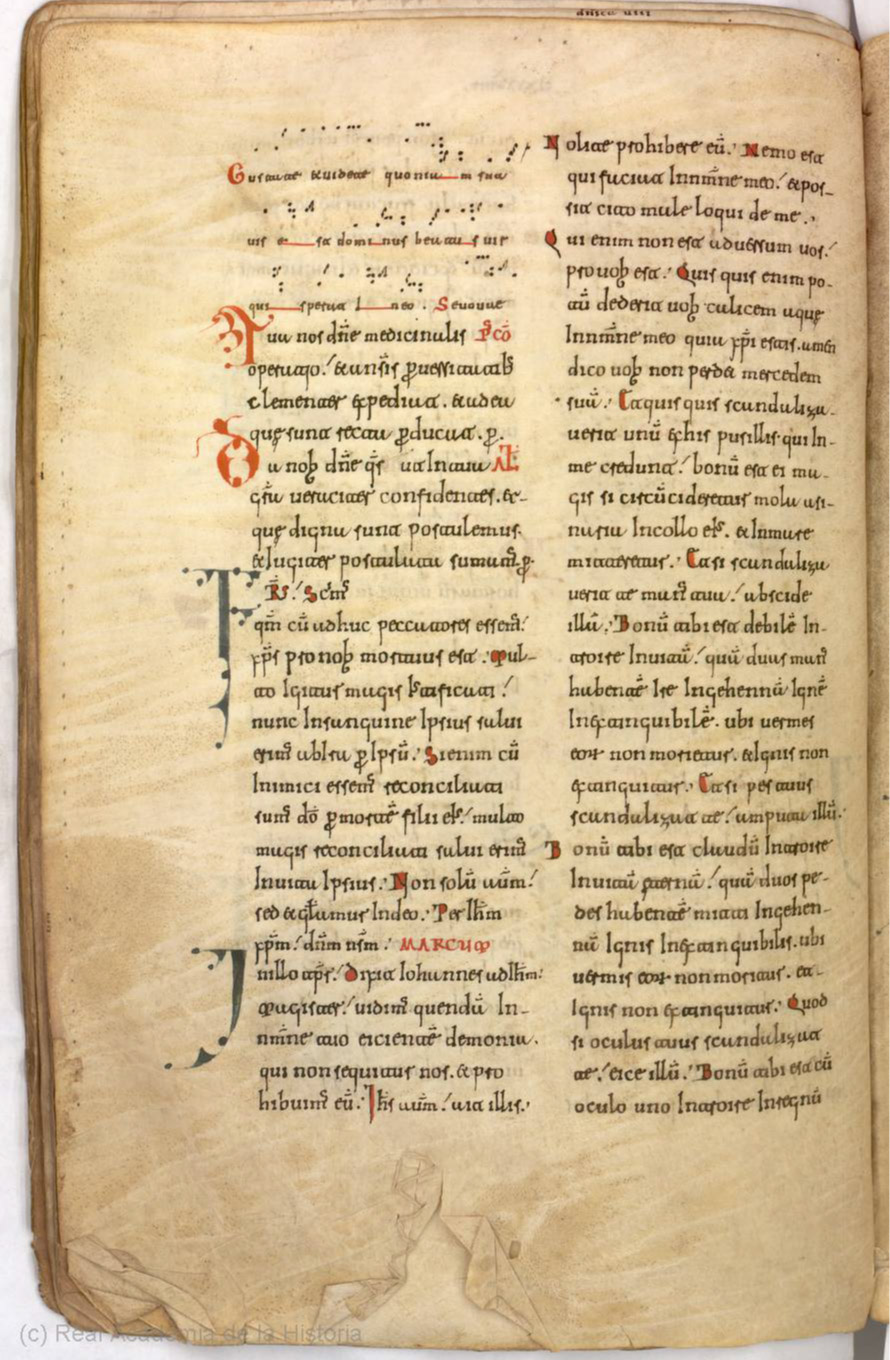 Gustate & uidete quonia m sua
uis e sa domi nus beatu s uir
qui sperat I neo . Seuouae
Tua nos dñe medicinalis Pꝰcō
operatio.' & a nr̄is ꝑuersitatib
clementer expediat. & ad ea
quę sunt recta ꝑducat. ꝑ.
Da nob dñe qs̄ ut In tua
gr̄a ueraciter confidentes. &
quę digna sunt postulemus.
& Iugiter postulata sumam̄. ꝑ.
Frs̄.' Scm̄
qm̄ cū adhuc peccatores essem̄.'
xp̄s pro nob mortuus est .' Mul-
to Igitur magis Iustificati .'
nunc Insanguine Ipsius salui
erim̄ ab Ira ꝑ Ipsū.' Si enim cū
Inimici essem̄ reconciliati
sum̄ dō ꝑ mortē filii ei's.' multo
magis reconciliati salui erim̄
Inuita Ipsius.' Non solū aūm.'
sed & gl̄amur Indeo.' Per Ihm̄
xp̄m.' dn̄m nr̄m.' MARCUM
In illo tp̄r.' Dixit Iohannes ad Ihm̄.'
Magister.' uidim̄ quendā In-
nm̄ne tuo eicientē demonia.
qui non sequitur nos. & pro
hibuim̄ eū.' Ihs aūm.' ait illis.'
Nolite prohibere eū.' Nemo est
qui faciat Innm̄ne meo.' & pos-
sit cito male loqui de me.'
Qui enim non est aduersum uos.'
pro uob est.' Quis quis enim po-
tū dederit uob calicem aquę
Innm̄ne meo quia xp̄i estis. amen
dico uob non perdet mercedem
suā.' Et quis quis scandaliza-
uerit unū ex his pusillis. qui In-
me credunt.' bonū est ei ma-
gis si circūcideretur mola asi-
naria Incollo ei's. & Inmare
mitteretur.' Et si scandaliza
uerit te man̄ tua.' abscide
illā.' Bonū tibi est debilē In-
troire Inuitā.' quā duas man̄
habentē Ire Ingehennā Ignē
Inextinguibilē. ubi uermes
eor non morietur. & Ignis non
extinguitur.' Et si pes tuus
scandalizat te.' amputa illū.'
Bonū tibi est claudū Introire
Inuitā aeternā.' quā duos pe-
des habentē mitti Ingehen-
nā Ignis Inextinguibilis. ubi
uermis eor non moritur. et
Ignis non extinguitur.' Quod
si oculus tuus scandalizat
te.' eice illū.' Bonū tibi est cū
oculo uno Introire Inregnū
(c) Real Academia de la Historia